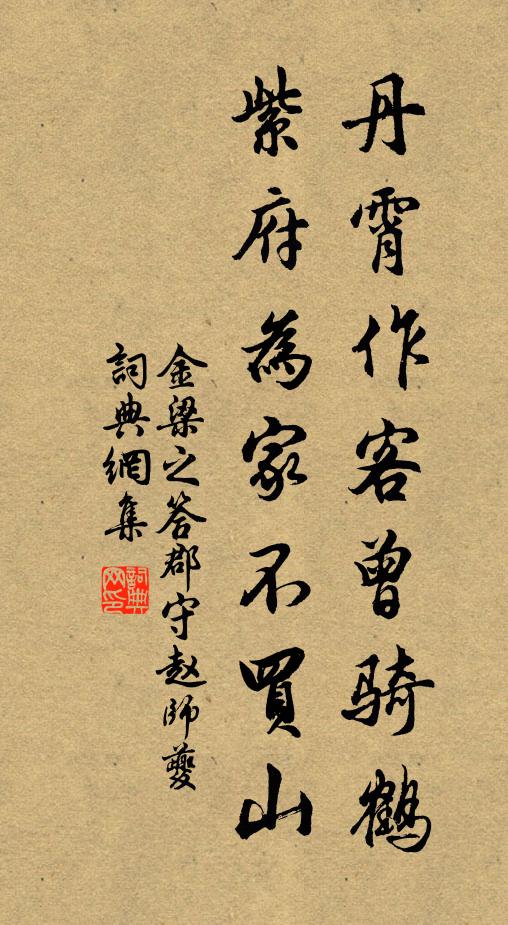 丹霄作客曾騎鶴
紫府為家不買山
金梁之答郡守赵師夔
詞典網集
詞典網印